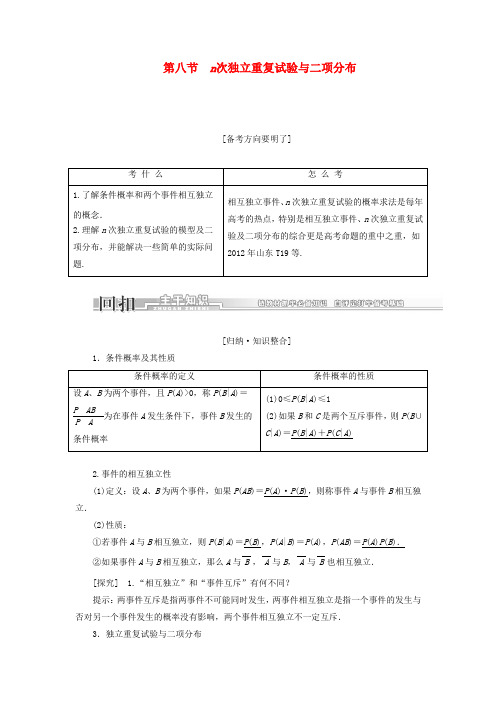 第八节 n次独立重复试验与二项分布
[备考方向要明了]
考 什 么
怎 么 考
1.了解条件概率和两个事件相互独立
的概念.
2.理解n次独立重复试验的模型及二
项分布,并能解决一些简单的实际问
题.
相互独立事件、n次独立重复试验的概率求法是每年
高考的热点,特别是相互独立事件、n次独立重复试
验及二项分布的综合更是高考命题的重中之重,如
2012年山东T19等.
回扣 主干知识
[归纳·知识整合]
1.条件概率及其性质
条件概率的定义
条件概率的性质
设A、B为两个事件,且P(A)>0,称P(B|A)=
P AB
P A 为在事件A发生条件下,事件B发生的
条件概率
(1)0≤P(B|A)≤1
(2)如果B和C是两个互斥事件,则P(B∪
C|A)=P(B|A)+P(C|A)
2.事件的相互独立性
(1)定义:设A、B为两个事件,如果P(AB)=P(A)·P(B),则称事件A与事件B相互独
立.
(2)性质:
①若事件A与B相互独立,则P(B|A)=P(B),P(A|B)=P(A),P(AB)=P(A)P(B).
②如果事件A与B相互独立,那么A与B̄,Ā与B,Ā与B̄也相互独立.
[探究] 1.“相互独立”和“事件互斥”有何不同?
提示:两事件互斥是指两事件不可能同时发生,两事件相互独立是指一个事件的发生与
否对另一个事件发生的概率没有影响,两个事件相互独立不一定互斥.
3.独立重复试验与二项分布